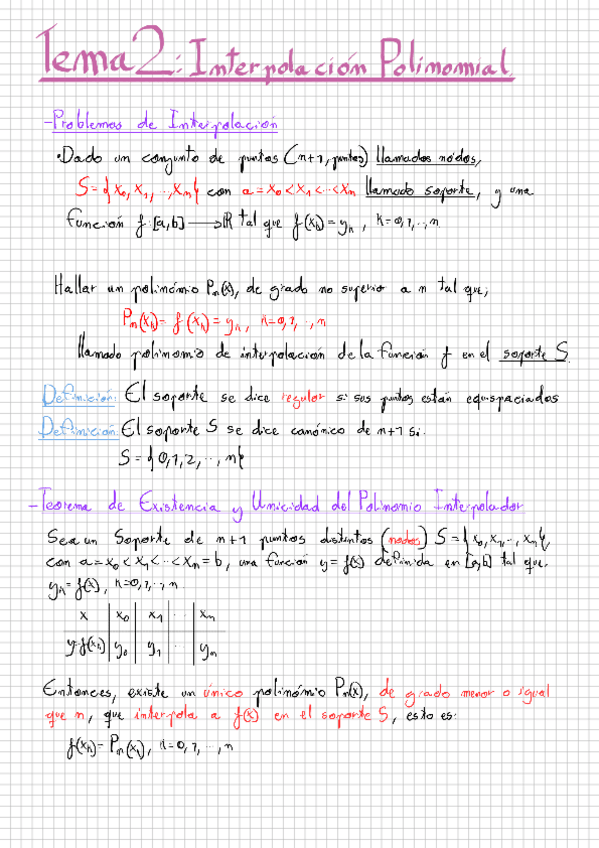 Tema 2: Interpolación Polinomial.
-Problemas de Interpolación
•Dado un conjunto de puntos (n+1, puntos) llamados nodos,
S={x₀, x₁, ..., xₙ} con a=x₀<x₁<...<xₙ llamado soporte, y una
función f:[a,b]→ℝ tal que f(xₖ)=yₖ, k=0,1,..,n
Hallar un polinómio Pₙ(x), de grado no superior a n tal que;
Pₙ(xₖ)=f(xₖ)=yₖ, k=0,1,..,n
llamado polinomio de interpolación de la función f en el soporte S.
Definición: El soporte se dice regular si sus puntos están equispaciados
Definición: El soporte S se dice canónico de n+1 si.
S={0,1,2,..,n}
-Teorema de Existencia y Unicidad del Polinomio Interpolador
Sea un Soporte de n+1 puntos distintos (nodos) S={x₀,x₁,..,xₙ},
con a=x₀<x₁<..<xₙ=b, una función y=f(x) definida en [a,b] tal que.
yₖ=f(x), k=0,1,..,n
x | x₀ | x₁ | .. | xₙ
y=f(xₖ) | y₀ | y₁ | .. | yₙ
Entonces, existe un único polinómio Pₙ(x), de grado menor o igual
que n, que interpola a f(x) en el soporte S, esto es:
f(xₖ)=Pₙ(xₖ), k=0,1,..,n